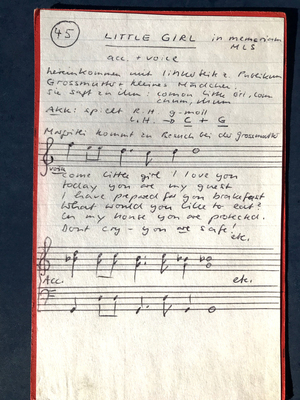 45 LITTLE GIRL in memoriam
MLS
acc. + voice
hereinkommen mit linker Seite z. Publikum
Grossmutter + kleines Mädchen.
sie sagt zu ihm: common little girl, com
Akk: spielt R.H. g-moll
L.H. → C + G
kommt zu Besuch bei der grossmutter
voice
come little girl I love you
today you are my guest
I have prepared for you brakefast
What would you like to eat?
In my house you are protected.
Dont cry - you are safe!
etc.
Acc. etc.